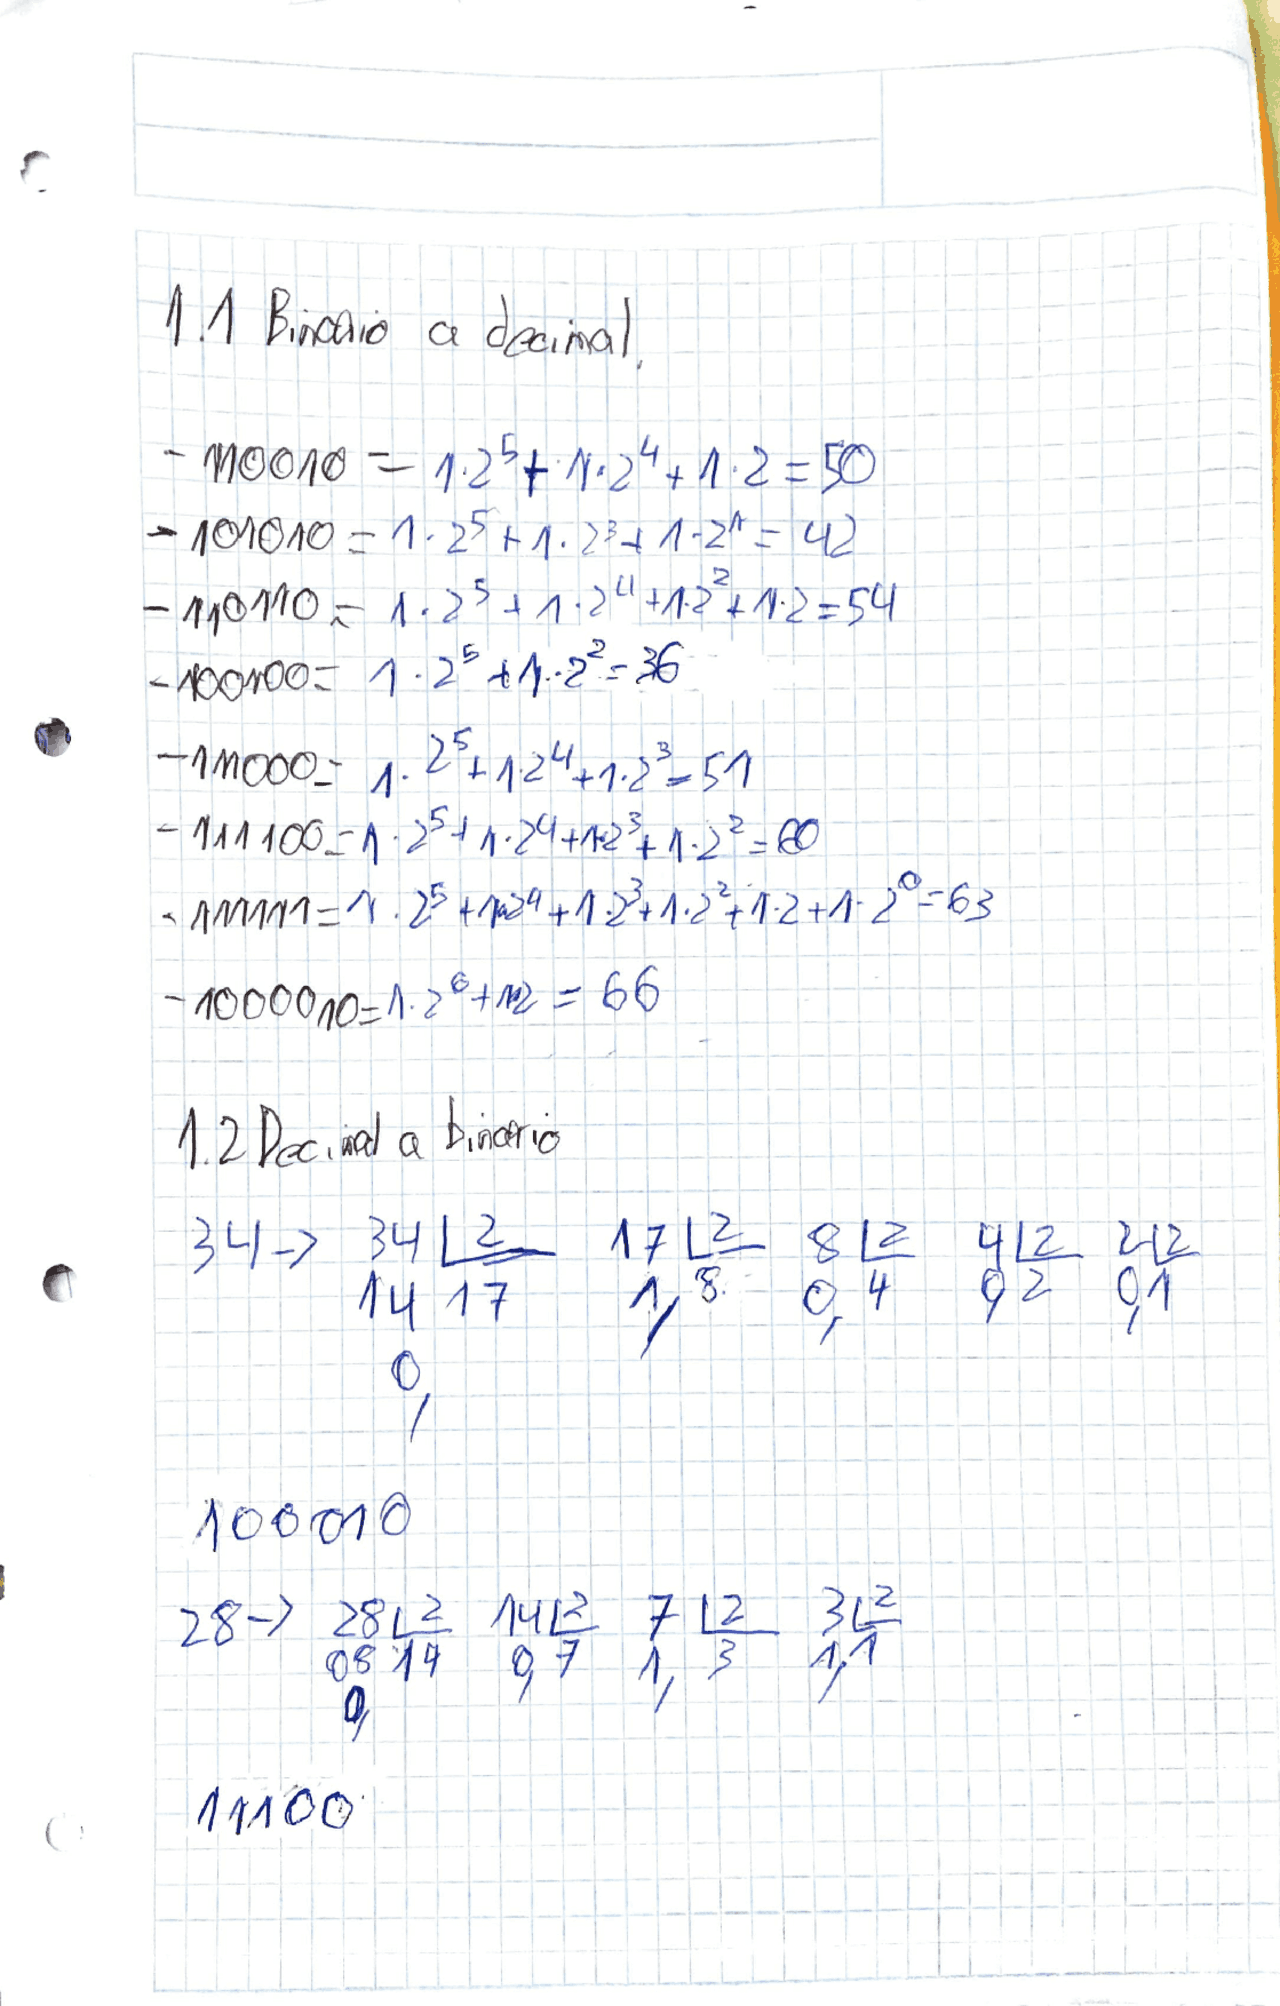 1.1 Binario a decimal.
- 110010 = 1·2⁵ + 1·2⁴ + 1·2 = 50
- 101010 = 1·2⁵ + 1·2³ + 1·2¹ = 42
- 110110 = 1·2⁵ + 1·2⁴ + 1·2² + 1·2 = 54
- 100100 = 1·2⁵ + 1·2² = 36
- 111000 = 1·2⁵ + 1·2⁴ + 1·2³ = 51
- 111100 = 1·2⁵ + 1·2⁴ + 1·2³ + 1·2² = 60
- 111111 = 1·2⁵ + 1·2⁴ + 1·2³ + 1·2² + 1·2 + 1·2⁰ = 63
- 1000010 = 1·2⁶ + 1·2 = 66
1.2 Decimal a binario
34 → 34 2 17 2 8 2 4 2 2 2
14 17 1, 8 0, 4 0, 2 0, 1
0,
100010
28 → 28 2 14 2 7 2 3 2
08 14 0, 7 1, 3 1, 1
0,
11100